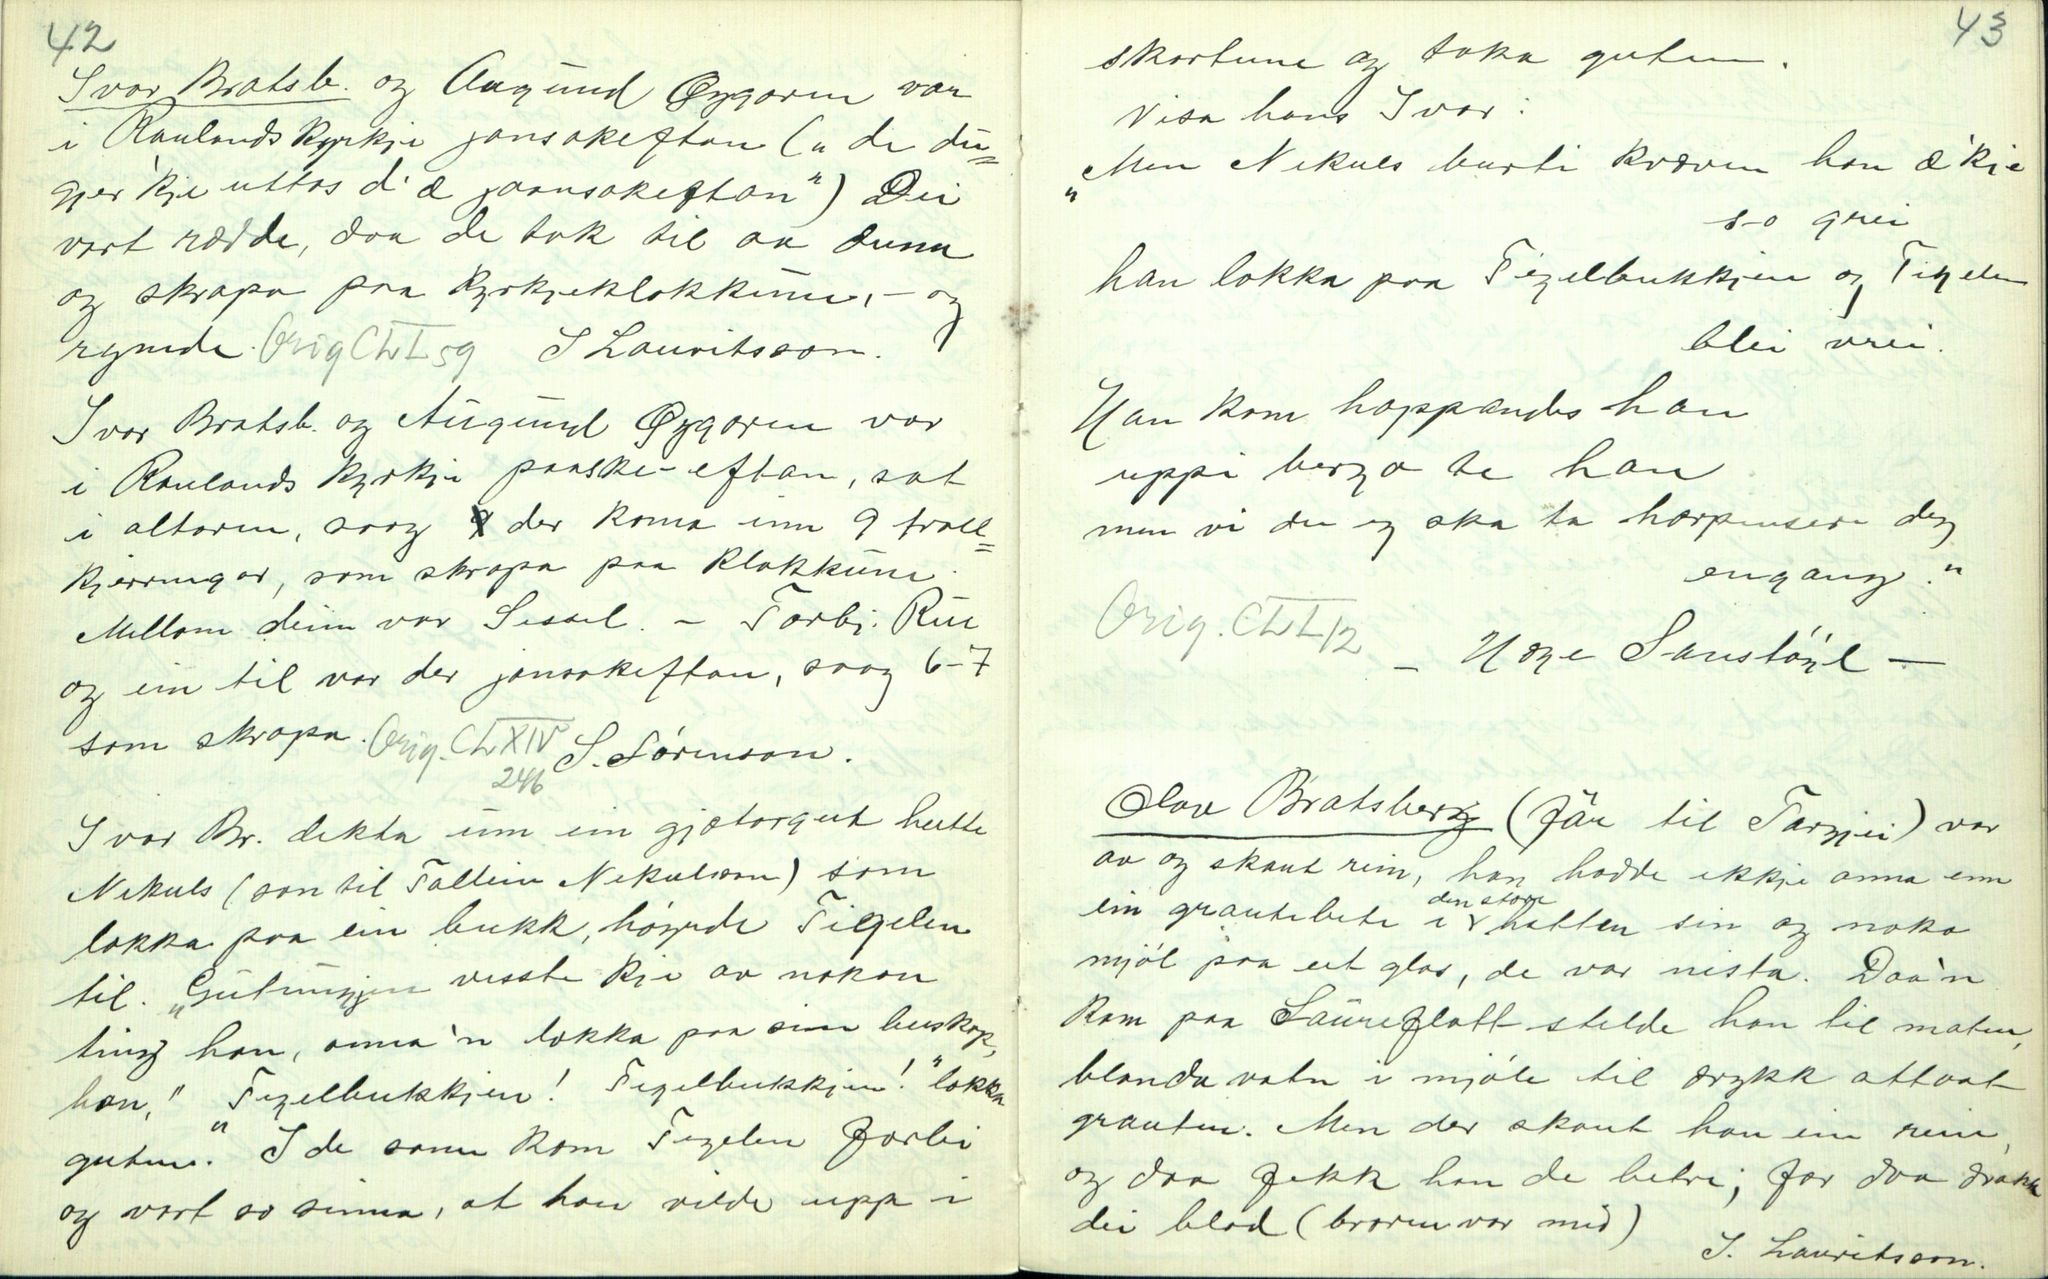 42
Ivar Bratsb. og Augund Øygaren var
i Raulands kyrkje jonsokeftan („de du=
gjer 'kje uttas d' æ joonsokeftan") Dei
vart rædde, daa de tok til aa duna
og skrapa paa kyrkjeklokkune, – og
rymde. Orig CLI 59 S Lauritsson.
Ivar Bratsb. og Augund Øygaren var
i Raulands kyrkje paaske-eftan, sat
i altaren, saag der koma inn 9 troll=
kjerringar, som skrapa paa klokkune.
Millom deim var Sissel. – Torbj. Rui
og ein til var der jonsokeftan, saag 6–7
som skrapa. Orig. CLXIV S. Sørenson.
246
Ivar Br. dikta um ein gjætargut heitte
Nekuls (son til Tallein Nekulson) som
lokka paa ein bukk, høyrde Tigelen
til. „Gutungjen visste kje av nokon
ting han, anna 'n lokka paa sin buskap,
han," „Tegelbukkjen! Tegelbukkjen!" lokka
guten. I de same kom Tegelen forbi
og vart so sinna, at han vilde upp i
43
skortune og taka guten.
Visa hans Ivar:
„Men Nekuls burti kvæven han æ 'kje
so grei
han lokka paa Tegelbukkjen og Tigelen
blei vrei.
Han kom hoppandes han
uppi berga te han
men vi du eg ska ta harpensere deg
engang."
Orig. CLI 12
– Hæge Sanstøyl –
Olav Bratsberg (får til Targjei) var
av og skaut rein, han hadde ikkje anna enn
ein grautebete i den store hatten sin og noko
mjøl paa eit glas, de var nista. Daa'n
kom paa Saureflott stelde han til maten,
blanda vatn i mjøle til drykk attaat
grauten. Men der skaut han ein rein,
og daa fekk han de betre; for daa drakk
dei blod (broren var med)
S. Lauritsson.